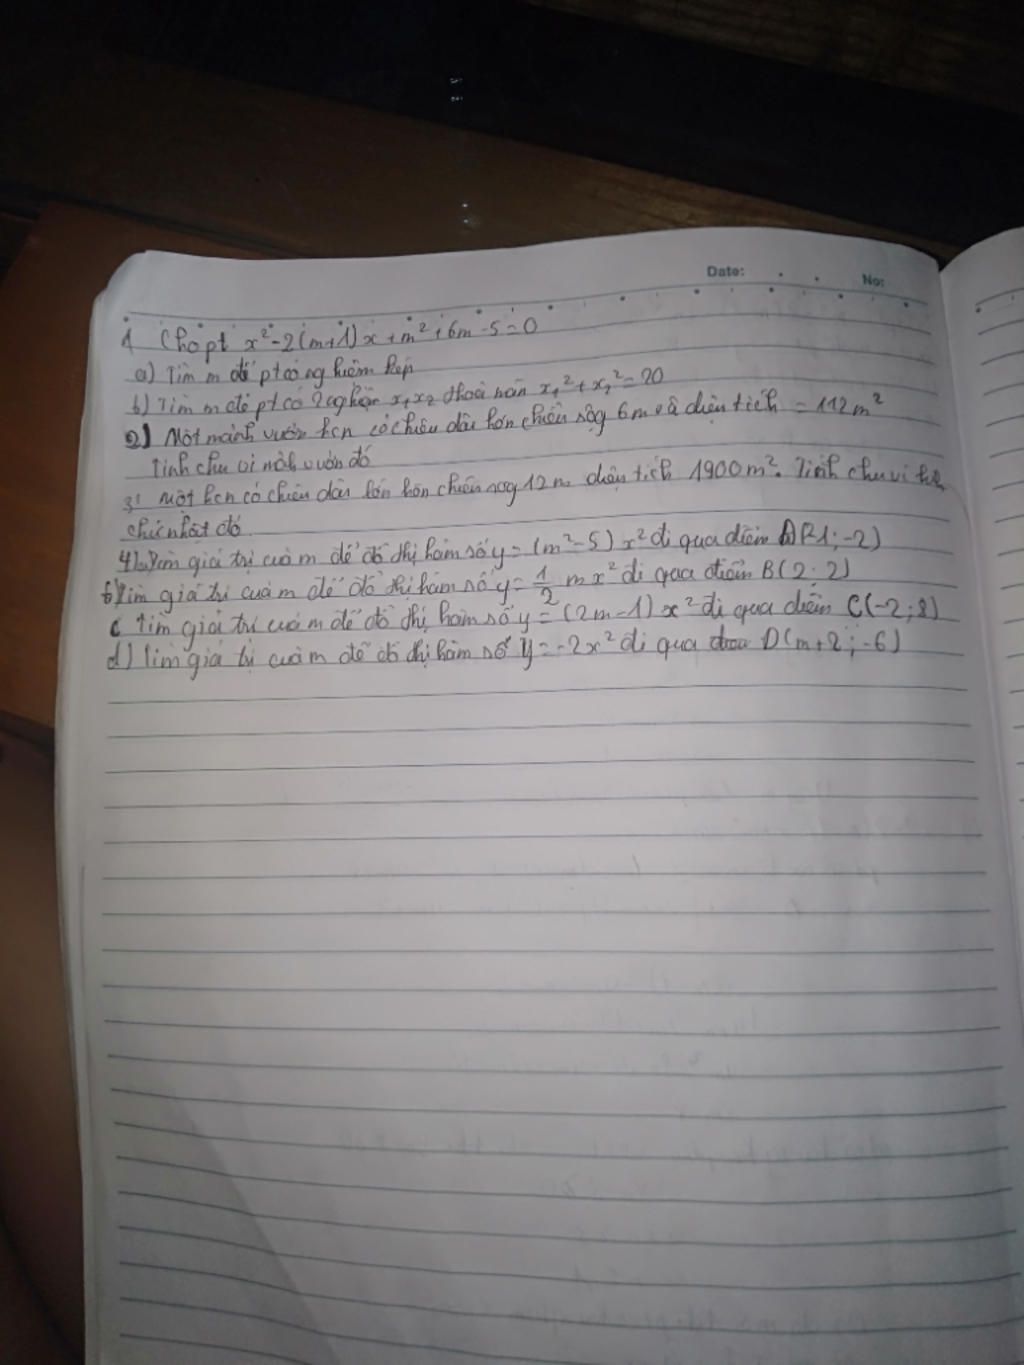 Date: No:
1 Cho pt x²-2(m+1)x+m²+6m-5=0
a) Tìm m để pt có nghiệm kép
b) Tìm m để pt có 2 nghiệm x₁x₂ thoả mãn x₁²+x₂²=20
2) Một mảnh vườn hcn có chiều dài hơn chiều rộg 6m và diện tích =112m²
Tính chu vi mảh vườn đó
3) Một hcn có chiều dài lớn hơn chiều rộg 12m diện tích 1900m². Tính chu vi hìh
chữ nhật đó
4) Tìm giá trị của m để đồ thị hàm số y=(m²-5)x² đi qua điểm A(-1;-2)
b) Tìm giá trị của m để đồ thị hàm số y=1/2 mx² đi qua điểm B(2;2)
c Tìm giá trị của m để đồ thị hàm số y=(2m-1)x² đi qua điểm C(-2;8)
d) Tìm giá trị của m để đồ thị hàm số y=-2x² đi qua D(m+2;-6)